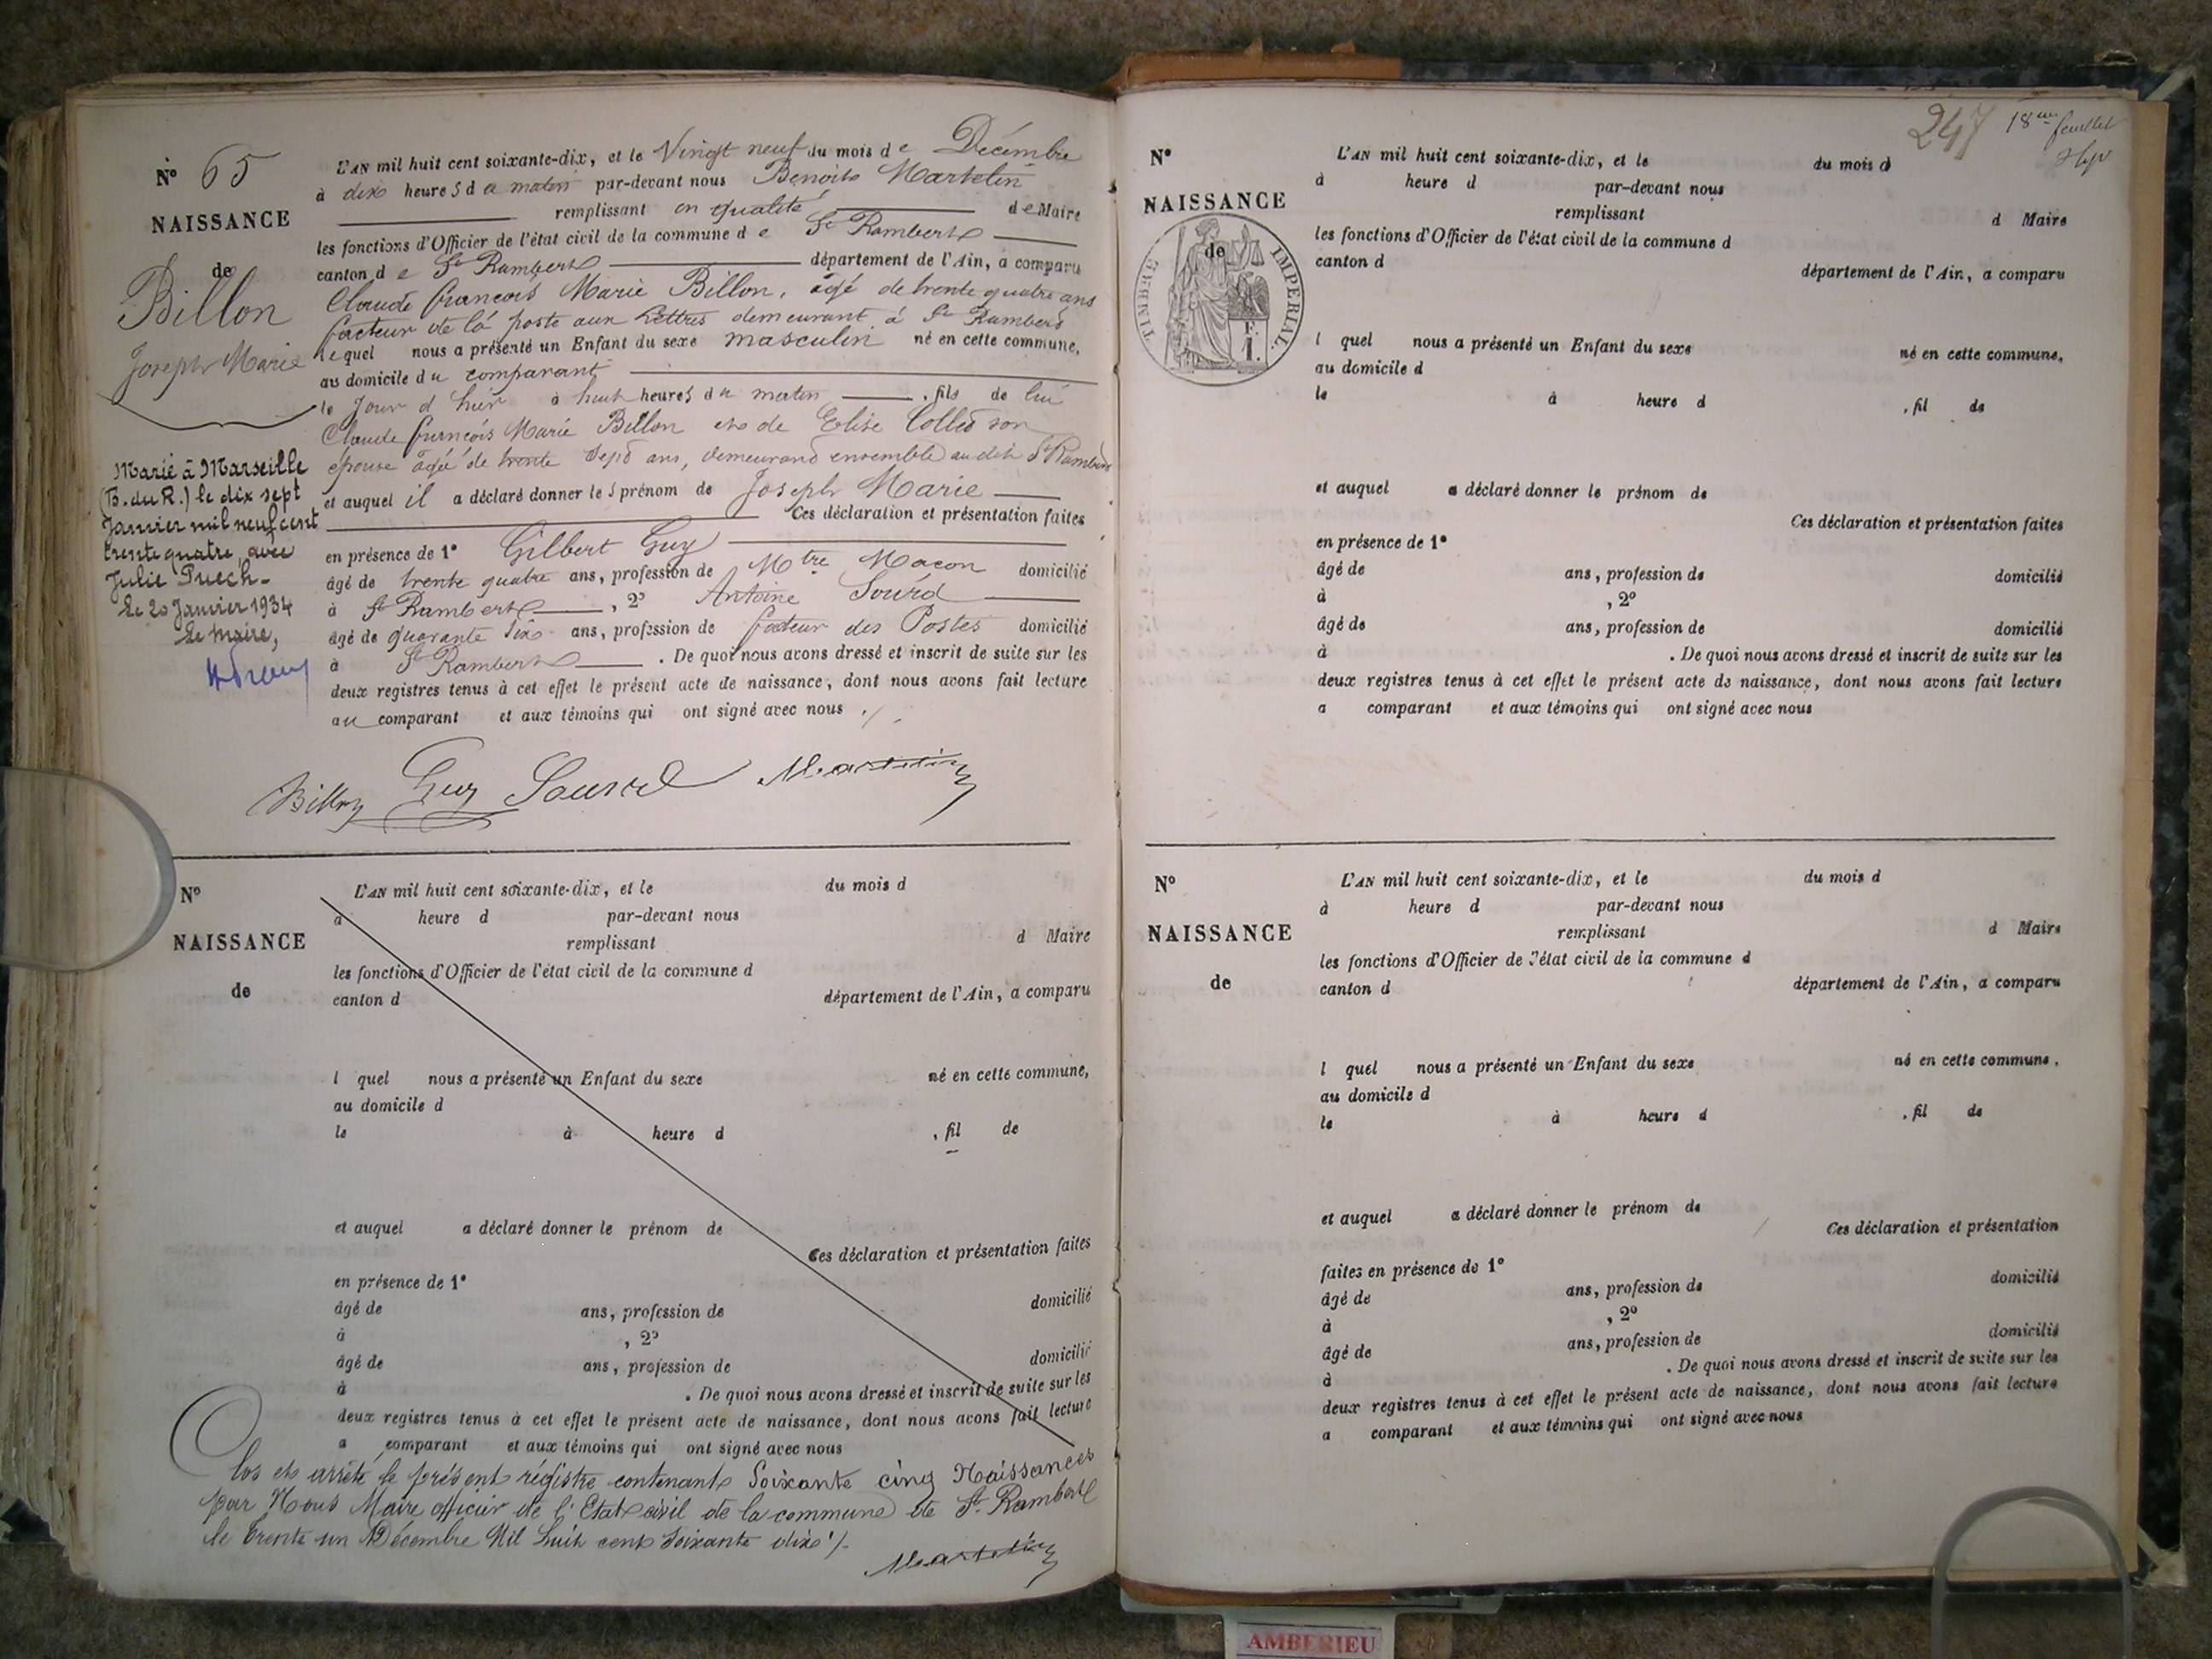 N° 65
NAISSANCE
de
Billon
Joseph Marie
Marié à Marseille
(B. du R.) le dix sept
Janvier mil neuf cent
trente quatre, avec
Julie Puech -
Le 20 Janvier 1934
Le maire,
L'AN mil huit cent soixante-dix, et le Vingt neuf du mois de Décembre
à dix heures du matin par-devant nous Benoit Martelin
remplissant en qualité de Maire
les fonctions d'Officier de l'état civil de la commune de St Rambert
canton de St Rambert département de l'Ain, a comparu
Claude françois Marie Billon, agé de trente quatre ans
facteur de la poste aux Lettres demeurant à St Rambert
lequel nous a présenté un Enfant du sexe masculin né en cette commune,
au domicile du comparant
le Jour d'hier à huit heures du matin, fils de lui
Claude françois Marie Billon et de Elise Collet son
épouse agée de trente sept ans, demeurant ensemble audit St Rambert
et auquel il a déclaré donner les prénom de Joseph Marie
Ces déclaration et présentation faites
en présence de 1° Gilbert Guy
âgé de trente quatre ans, profession de Mtre Maçon domicilié
à St Rambert, 2° Antoine Sourd
âgé de quarante six ans, profession de facteur des Postes domicilié
à St Rambert. De quoi nous avons dressé et inscrit de suite sur les
deux registres tenus à cet effet le présent acte de naissance, dont nous avons fait lecture
au comparant et aux témoins qui ont signé avec nous ./.
Billon Guy Sourd Martelin
N°
NAISSANCE
de
L'AN mil huit cent soixante-dix, et le du mois d
à heure d par-devant nous
remplissant d Maire
les fonctions d'Officier de l'état civil de la commune d
canton d département de l'Ain, a comparu
l quel nous a présenté un Enfant du sexe né en cette commune,
au domicile d
le à heure d , fil de
et auquel a déclaré donner le prénom de
Ces déclaration et présentation faites
en présence de 1°
âgé de ans, profession de domicilié
à , 2°
âgé de ans, profession de domicilié
à . De quoi nous avons dressé et inscrit de suite sur les
deux registres tenus à cet effet le présent acte de naissance, dont nous avons fait lecture
a comparant et aux témoins qui ont signé avec nous
Clos et arrêté le présent régistre contenant Soixante cinq Naissances
par Nous Maire officier de l'Etat civil de la commune de St. Rambert
le trente un Décembre Mil huit cent soixante dix ./.
Martelin
247 18me feuillet
N°
NAISSANCE
de
TIMBRE IMPERIAL.
F.
1.
L'AN mil huit cent soixante-dix, et le du mois d
à heure d par-devant nous
remplissant d Maire
les fonctions d'Officier de l'état civil de la commune d
canton d département de l'Ain, a comparu
l quel nous a présenté un Enfant du sexe né en cette commune,
au domicile d
le à heure d , fil de
et auquel a déclaré donner le prénom de
Ces déclaration et présentation faites
en présence de 1°
âgé de ans, profession de domicilié
à , 2°
âgé de ans, profession de domicilié
à . De quoi nous avons dressé et inscrit de suite sur les
deux registres tenus à cet effet le présent acte de naissance, dont nous avons fait lecture
a comparant et aux témoins qui ont signé avec nous
N°
NAISSANCE
de
L'AN mil huit cent soixante-dix, et le du mois d
à heure d par-devant nous
remplissant d Maire
les fonctions d'Officier de l'état civil de la commune d
canton d département de l'Ain, a comparu
l quel nous a présenté un Enfant du sexe né en cette commune,
au domicile d
le à heure d , fil de
et auquel a déclaré donner le prénom de
Ces déclaration et présentation
faites en présence de 1°
âgé de ans, profession de domicilié
à , 2°
âgé de ans, profession de domicilié
à . De quoi nous avons dressé et inscrit de suite sur les
deux registres tenus à cet effet le présent acte de naissance, dont nous avons fait lecture
a comparant et aux témoins qui ont signé avec nous
AMBERIEU